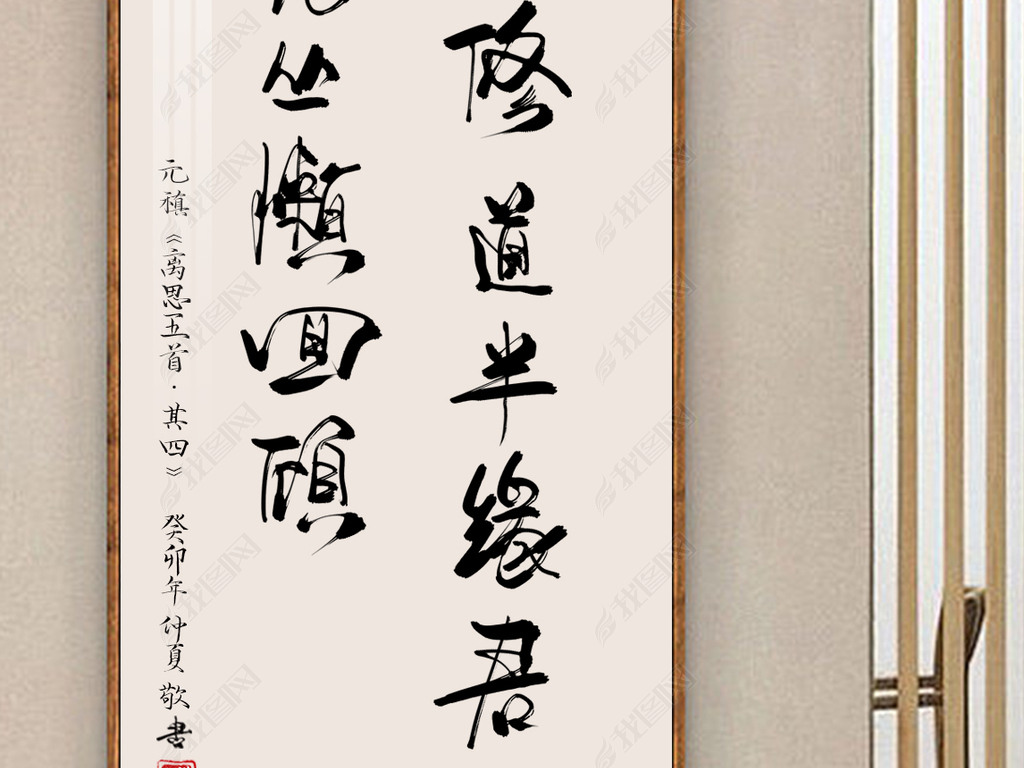 修道半缘君
丛懒回顾
元稹《离思五首·其四》 癸卯年仲夏敬书
找图网